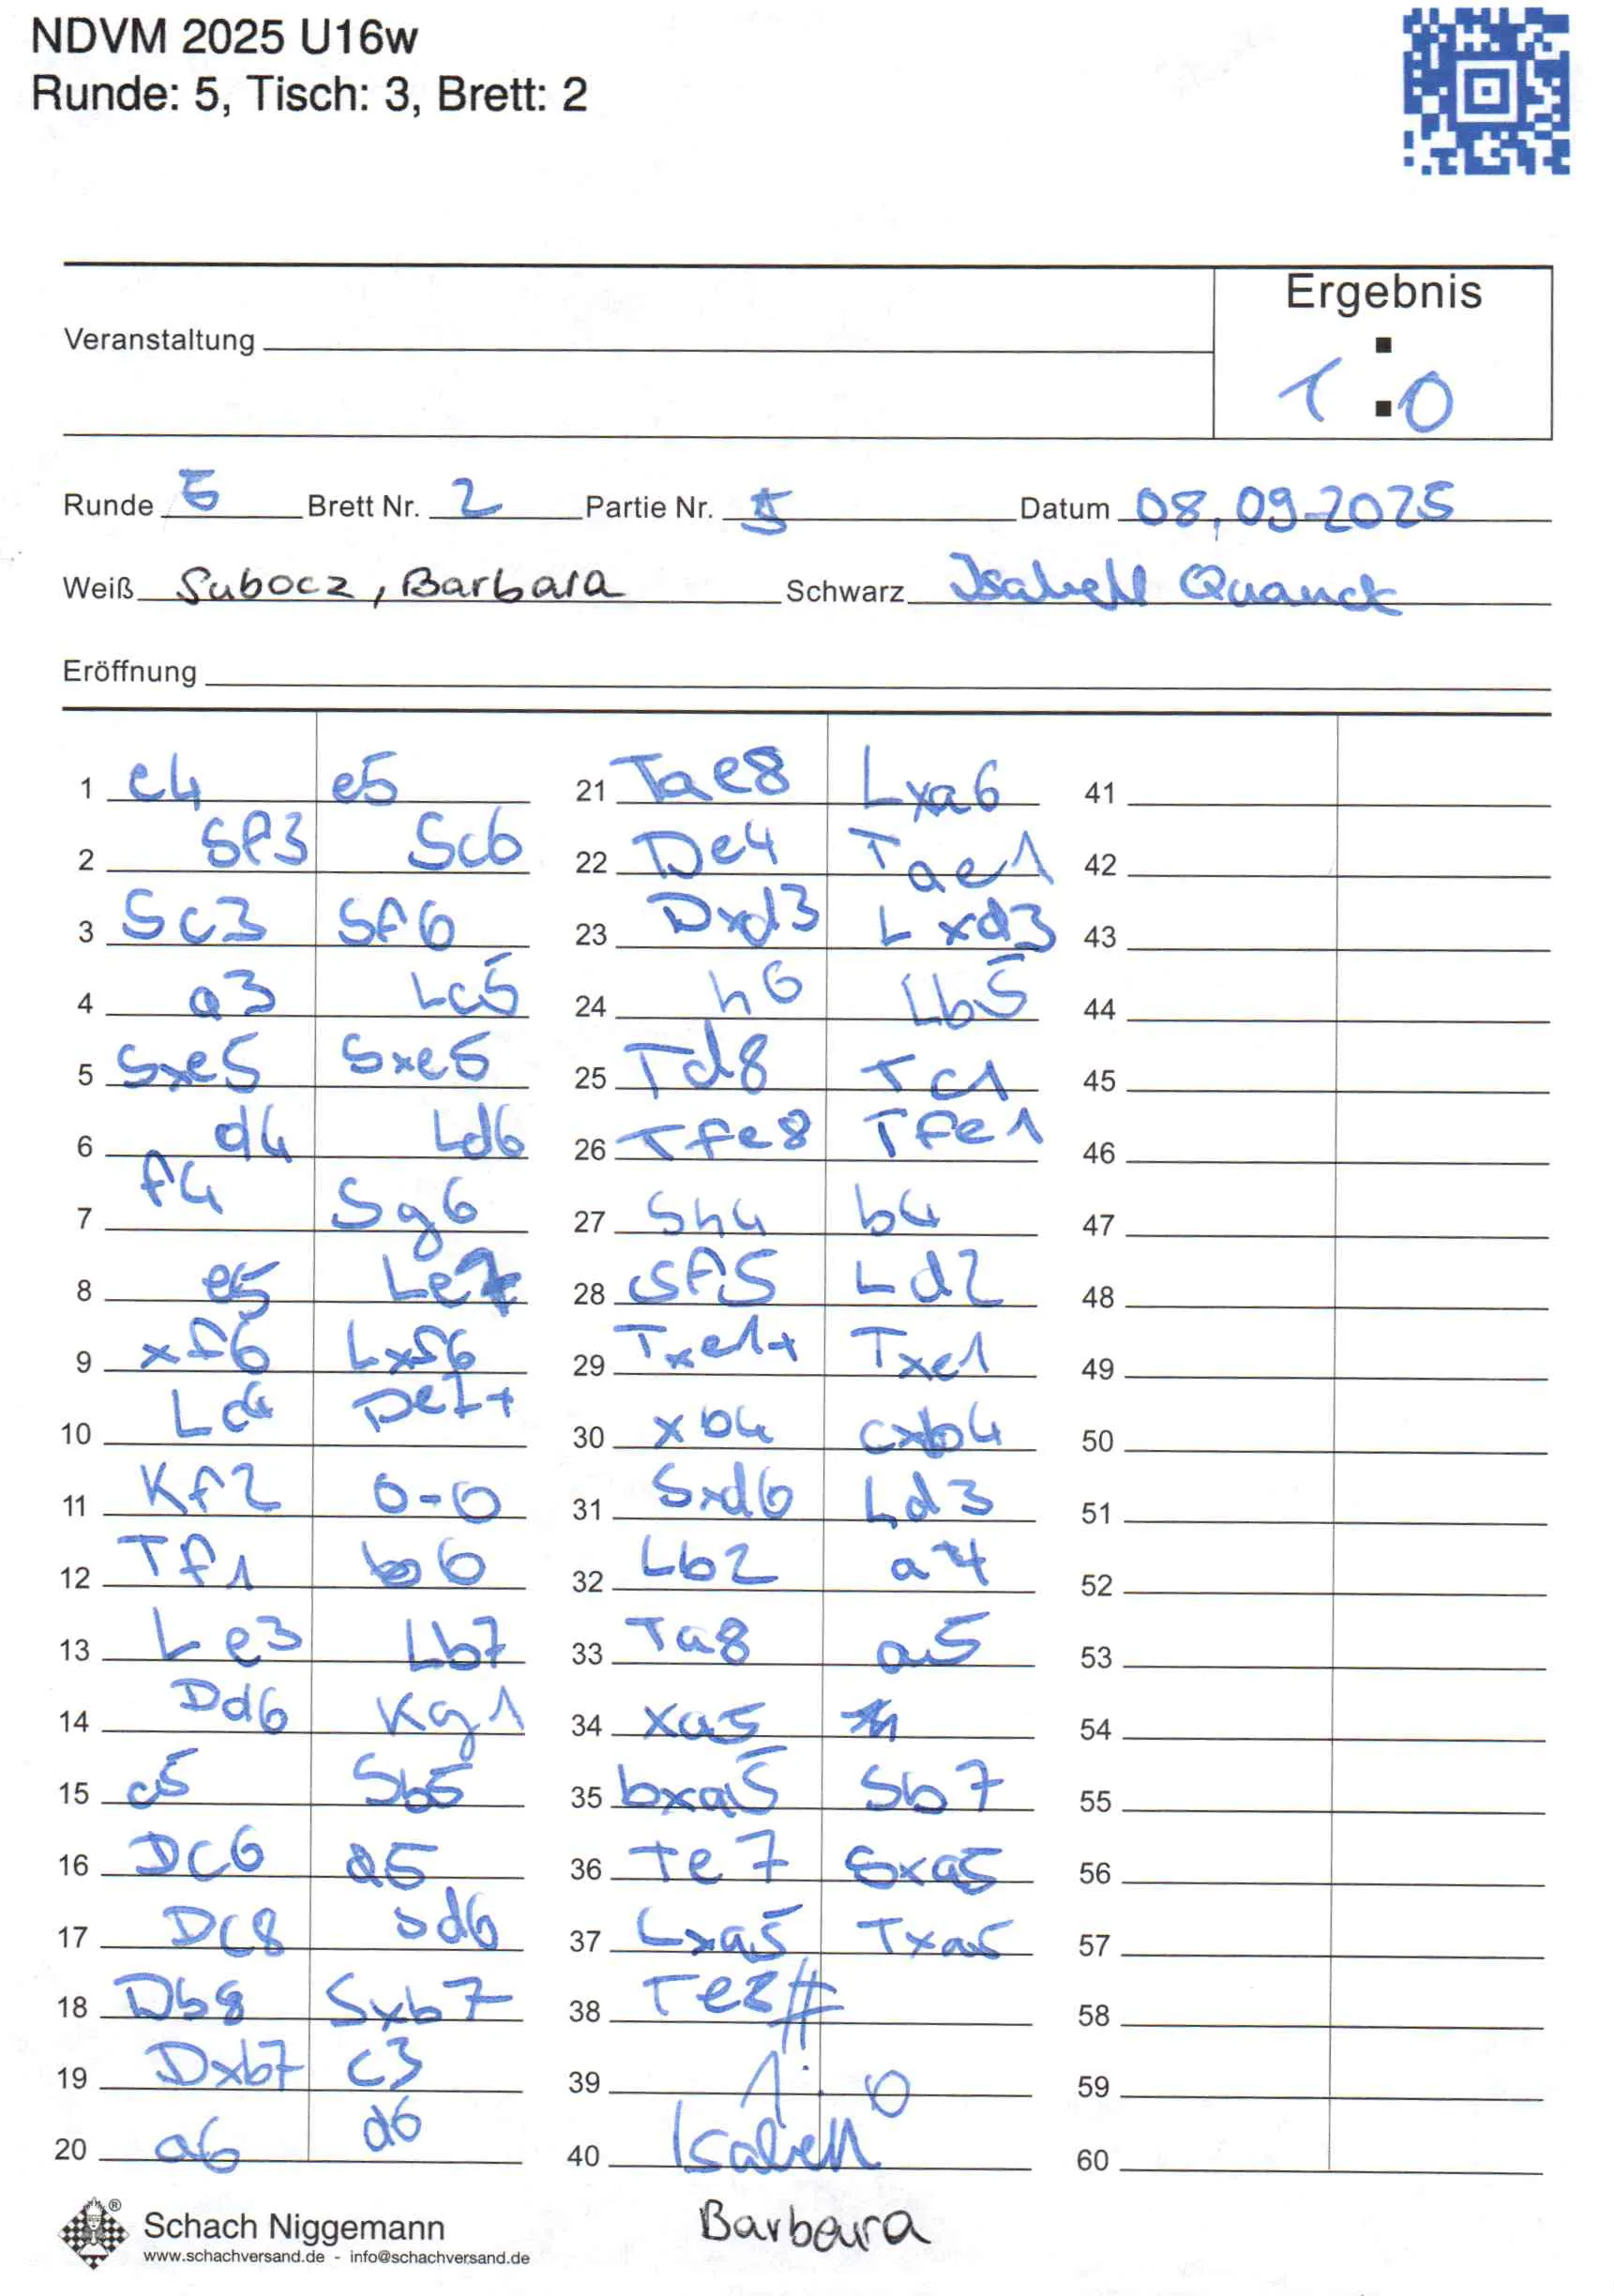 NDVM 2025 U16w
Runde: 5, Tisch: 3, Brett: 2
Ergebnis
Veranstaltung
1 : 0
Runde 5 Brett Nr. 2 Partie Nr. 5 Datum 08.09.2025
Weiß Subocz, Barbara Schwarz Isabell Quanck
Eröffnung
1 e4 e5
2 Sf3 Sc6
3 Sc3 Sf6
4 a3 Lc5
5 Sxe5 Sxe5
6 d4 Ld6
7 f4 Sg6
8 e5 Le7
9 xf6 Lxf6
10 Lc4 De7+
11 Kf2 0-0
12 Tf1 b6
13 Le3 Lb7
14 Dd6 Kg1
15 c5 Sb5
16 Dc6 a5
17 Dc8 Sd6
18 Db8 Sxb7
19 Dxb7 c3
20 a6 d6
21 Tae8 Lxa6
22 De4 Tae1
23 Dxd3 Lxd3
24 h6 Lb5
25 Td8 Tc1
26 Tfe8 Tfe1
27 Sh4 b4
28 Sf5 Ld2
29 Txe1+ Txe1
30 xb4 cxb4
31 Sxd6 Ld3
32 Lb2 a4
33 Ta8 a5
34 xa5
35 bxa5 Sb7
36 Te7 Sxa5
37 Lxa5 Txa5
38 Te2#
39 1:0
40 Isabell
41
42
43
44
45
46
47
48
49
50
51
52
53
54
55
56
57
58
59
60
Barbara
Schach Niggemann
www.schachversand.de - info@schachversand.de